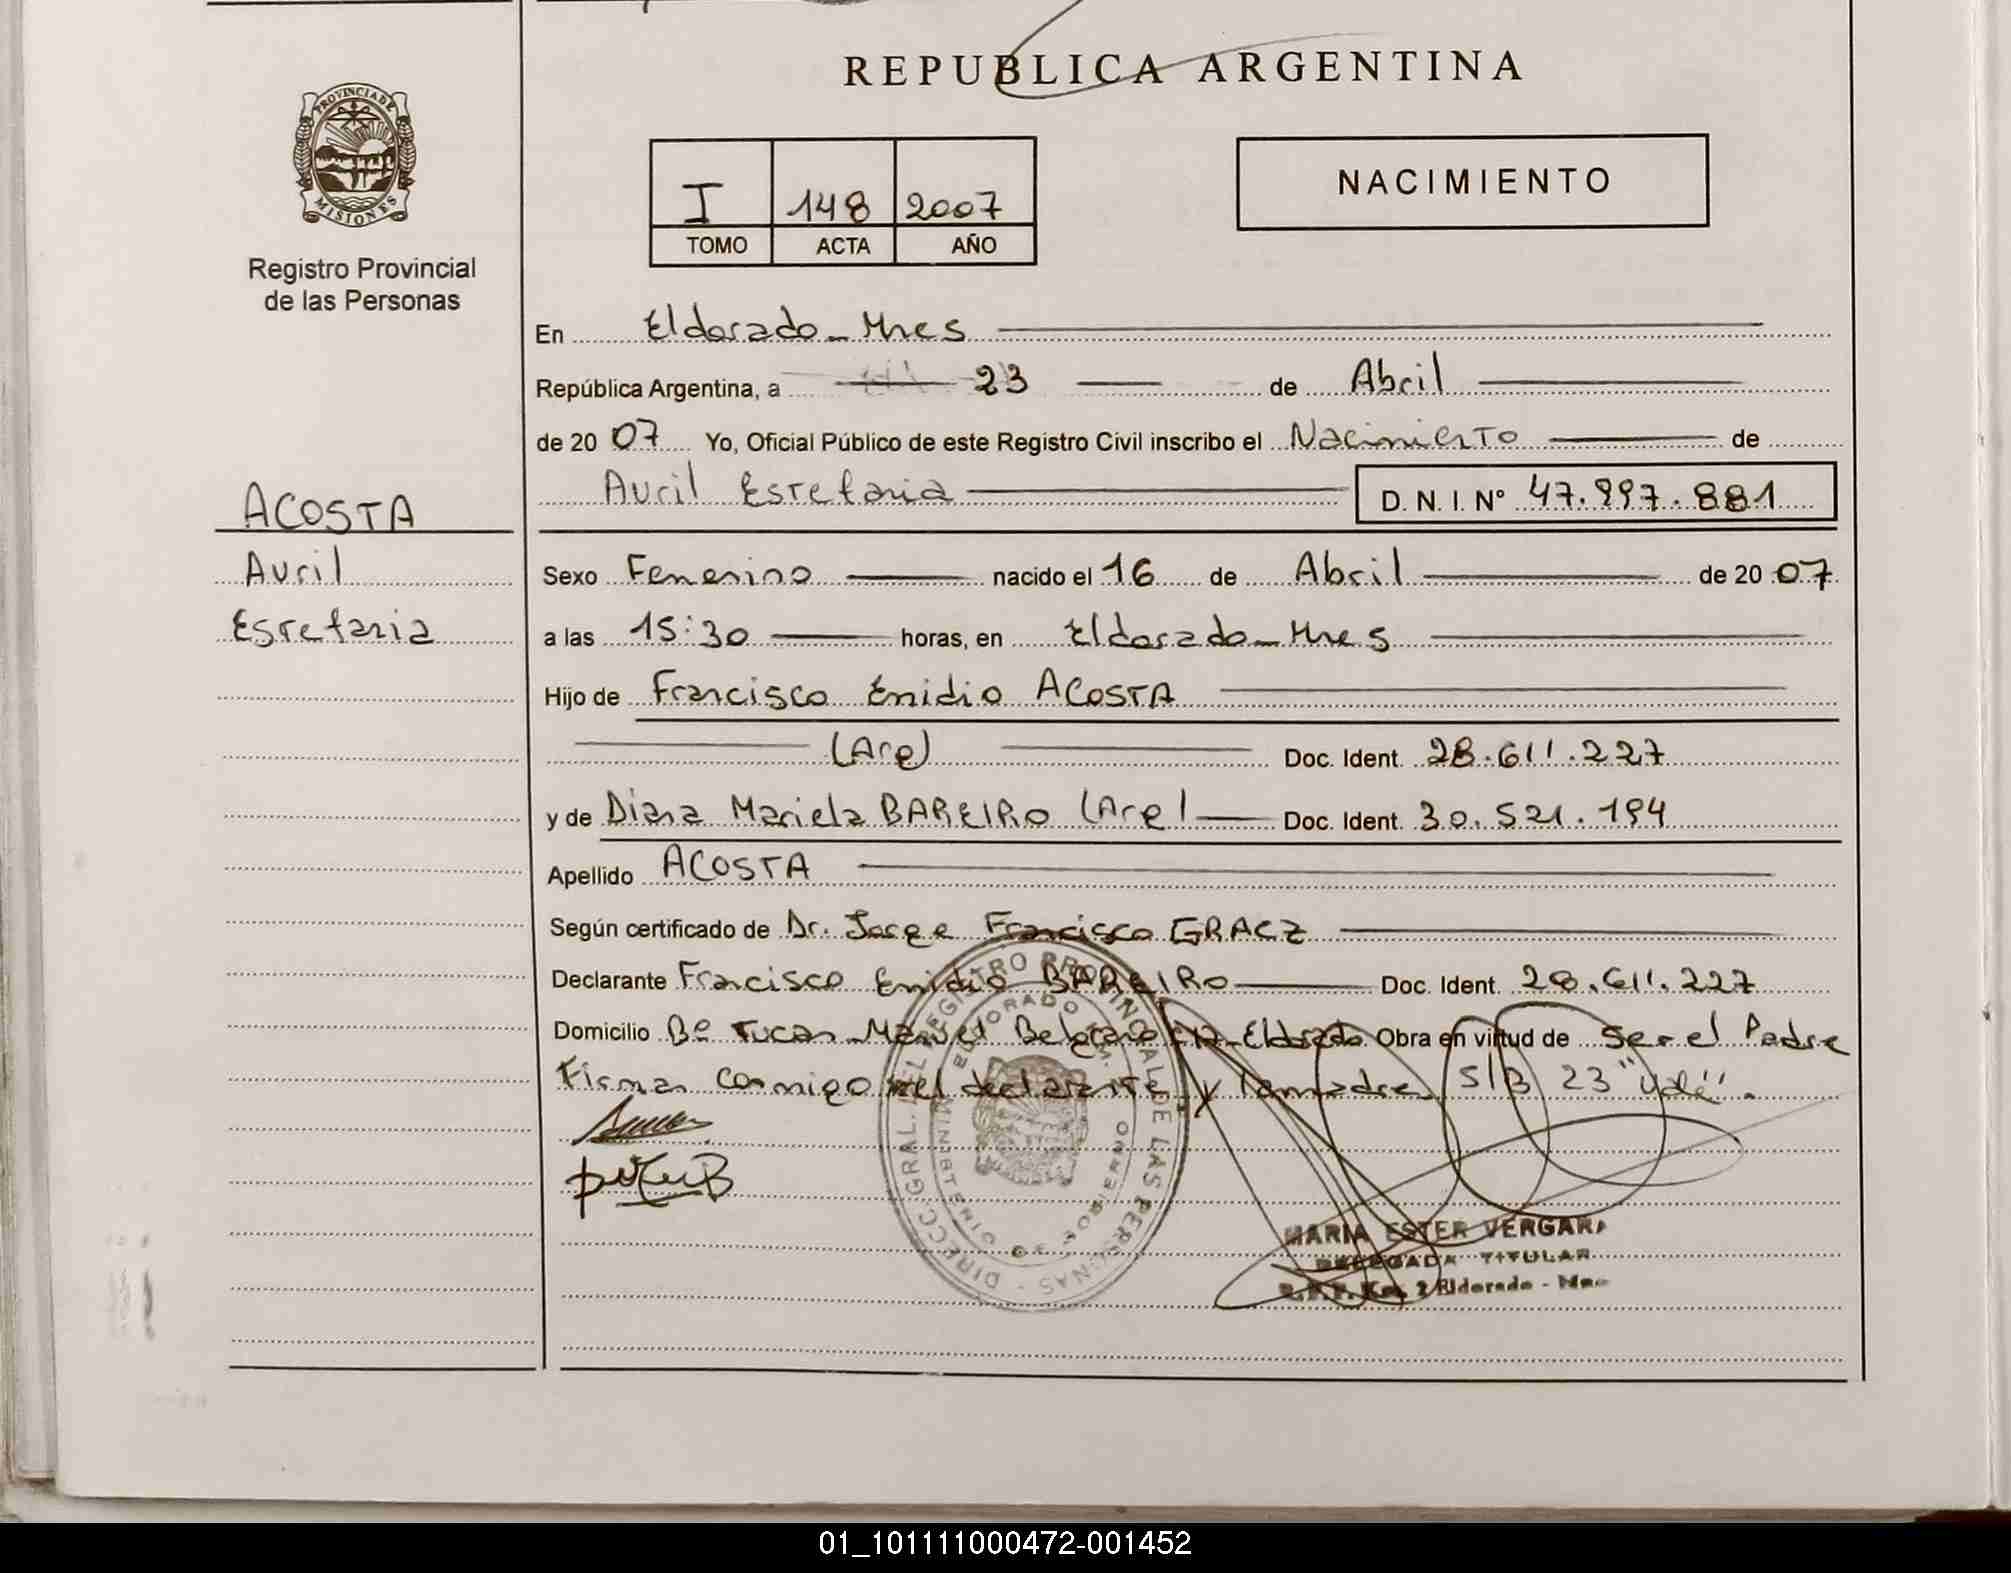 REPUBLICA ARGENTINA
PROVINCIA DE MISIONES
Registro Provincial
de las Personas
I 148 2007
TOMO ACTA AÑO
NACIMIENTO
En Eldorado - Mnes
República Argentina, a 23 de Abril
de 2007 Yo, Oficial Público de este Registro Civil inscribo el Nacimiento de
Avril Estefania D. N. I. N° 47.997.881
ACOSTA
Avril
Estefania
Sexo Femenino nacido el 16 de Abril de 2007
a las 15:30 horas, en Eldorado - Mnes
Hijo de Francisco Enidio ACOSTA
(Arg) Doc. Ident. 28.611.227
y de Diana Mariela BAREIRO (Arg) Doc. Ident. 30.521.194
Apellido ACOSTA
Según certificado de Dr. Jorge Francisco GRACZ
Declarante Francisco Enidio BAREIRO Doc. Ident. 28.611.227
Domicilio Bº Tucan Manuel Belgrano Eldorado Obra en virtud de Ser el Padre
Firman Conmigo el declarante y la madre S/B 23 "Vale".
DIRECC. GRAL. DEL REGISTRO PROVINCIAL DE LAS PERSONAS
MARIA ESTER VERGARA
DELEGADA TITULAR
R.P.P. Km. 2 Eldorado - Mnes
01_101111000472-001452